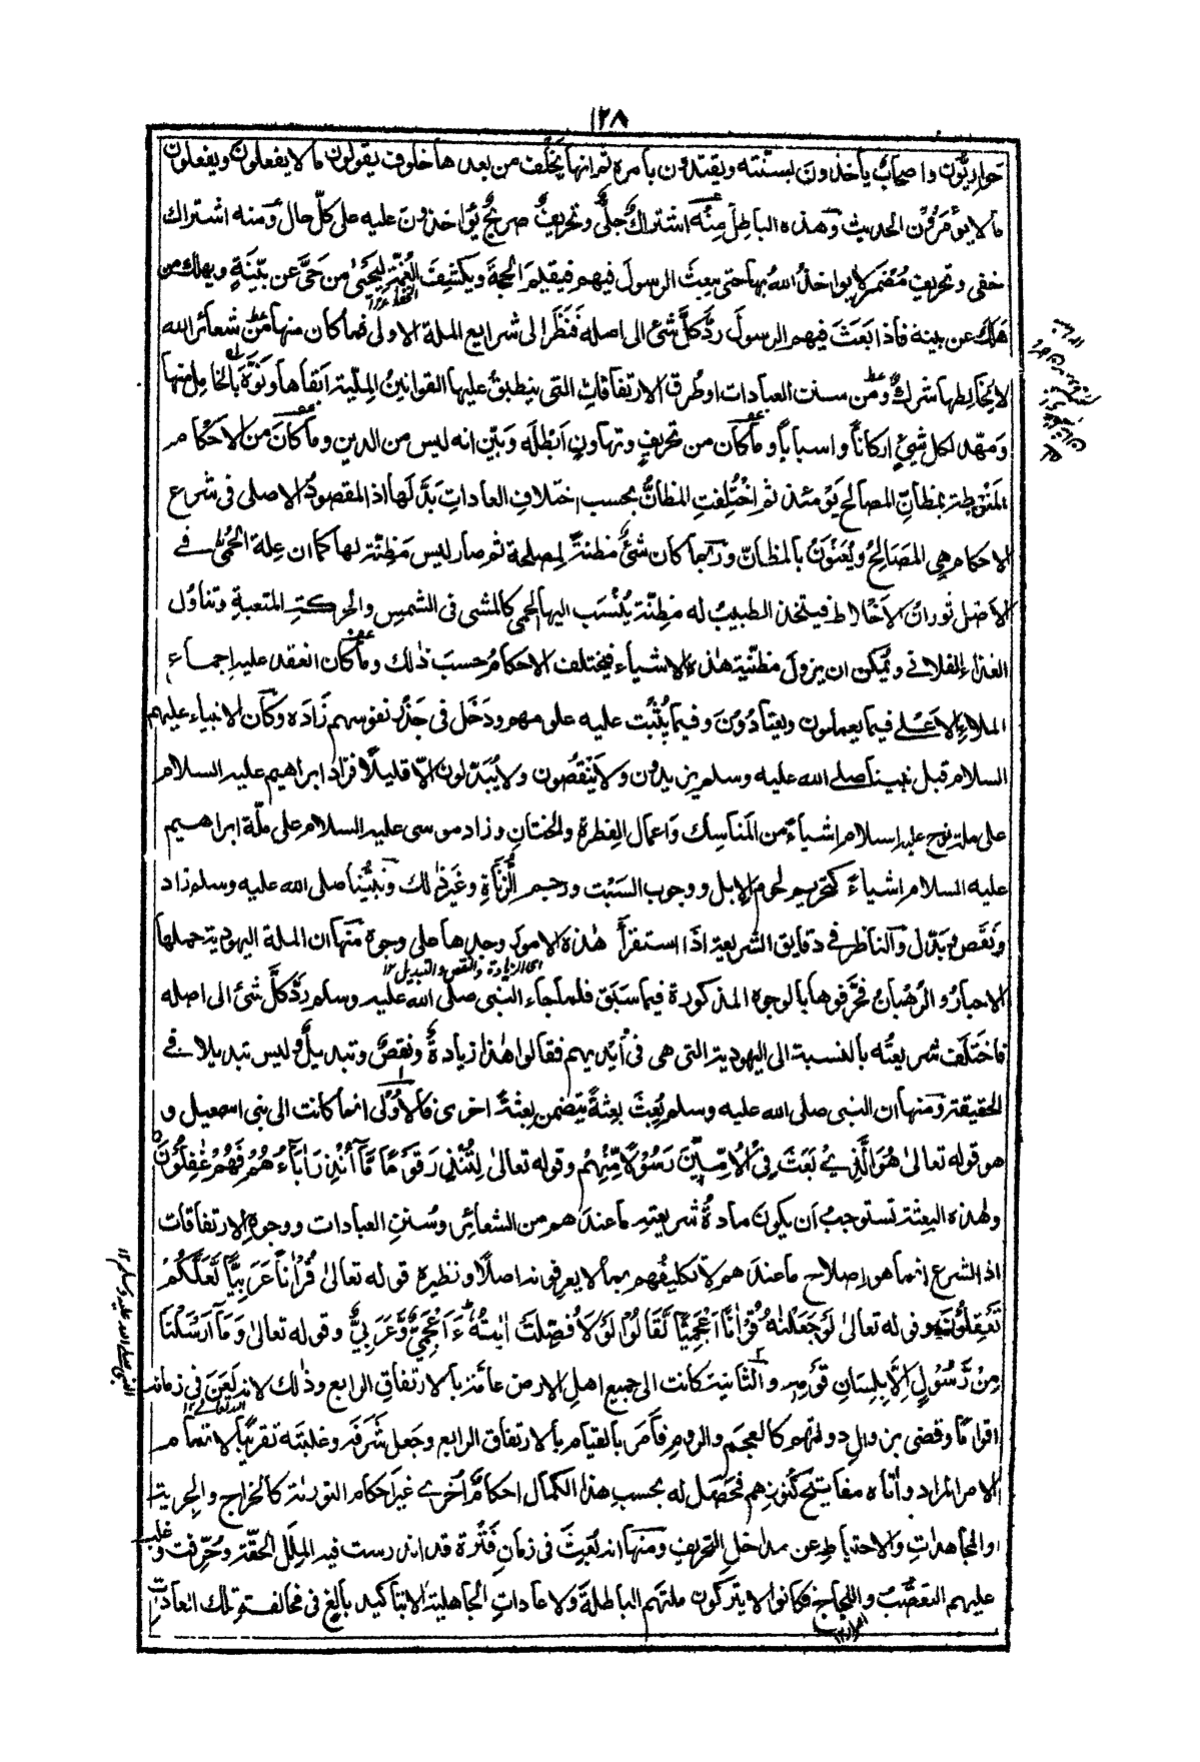 ١٢٨
حواريّون واصحابٌ يأخذون بسنّته ويقتدون بامره ثم انها تخلُف من بعدها خلوف يقولون ما لا يفعلون ويفعلون
ما لا يؤمرون الحديث وهذه الباطل منه اشتراكٌ جلىّ وتحريفٌ صريحٌ يؤاخذون عليه على كلّ حال ومنه اشتراك
خفى وتحريف مُضمَر لا يواخذُ اللهُ بها حتى يبعث الرسولَ فيهم فيقيم الحجة ويكشف الغُمّة ليحيىٰ من حىّ عن بيّنةٍ ويهلك من
هلك عن بينة فاذا بَعَثَ فيهم الرسولَ ردّ كلَّ شئ الى اصله فَنَظَرَ الى شرايع الملة الاولى فما كان منها من شعائر الله
لا يخالطها شركٌ ومن سنت العبادات او طرق الارتفاقاتِ التى ينطبق عليها القوانينُ الملّية ابقاها ونَوَّهَ بالخامل منها
ومهّد لكل شئٍ اركاناً واسباباً وما كان من تحريفٍ وتهاونٍ ابطله وبيّن انه ليس من الدين وما كان من الاحكام
المنوطة بمظانّ المصالح يومئذ ثم اختلفت المظانُّ بحسب اختلافِ العاداتِ بدّلها اذ المقصودُ الاصلى فى شرع
الاحكام هى المصَالحُ ويُعَنوَنُ بالمظانّ وربما كان شئٌ مظنةً لمصلحة ثم صار ليس مَظِنّةً لها كما ان علة الحُمّىٰ فے
الاصل ثورانُ الاخلاط فيتخذ الطبيبُ له مظِنّة يُنْسَب اليها الحمى كالمشى فى الشمس والحركة المتعبةِ وتناوُل
الغذاء الفلانے ويُمكن ان يزولَ مظنّية هذه الاشياء فيختلف الاحكامُ حسبَ ذٰلك وما كان انعقد عليه اجماع
الملاء الاعلے فيما يعملون ويعتادُون وفيما يثبُت عليه علومهم ودخَل فى جَذْر نفوسهم زاده وكان الانبياء عليهم
السلام قبل نبينا صلے الله عليه وسلم يزيدون ولا ينقُصون ولا يُبدّلون الّا قليلًا فزاد ابراهيم عليه السلام
على ملة نوح عليه السلام اشياءَ من المَناسِك واعمال الفِطرة والختانِ وزاد موسى عليه السلام على ملّة ابراهيم
عليه السلام اشياءَ كتحريم لحوم الابل ووجوب السَبْت ورجم الزُّناةِ وغيرِ ذٰلك ونبيُّنا صلى الله عليه وسلم زاد
ونَقَص وبدّل والناظر فى دقايق الشريعة اذا استقرأ هٰذه الامور وجدها على وجوه منها ان الملة اليهودية حملها
اى الزيادة والنقص والتبديل ١٢
الاحبارُ والرُهبانُ فحرّفوها بالوجوه المذكورة فيما سَبَق فلما جاء النبى صلى الله عليه وسلم ردَّ كلَّ شئ الى اصله
فاختَلَفت شريعتُه بالنسبة الى اليهودية التى هى فى أيديهم فقالوا هٰذا زيادةٌ ونقصٌ وتبديلٌ وليس تبديلا فے
الحقيقة ومنها ان النبى صلى الله عليه وسلم بُعِثَ بعثةً يتضمن بعثةً اخرى فالاُولٰى انما كانت الى بنى اسمعيل و
هو قوله تعالىٰ هُوَ الَّذِىْ بَعَثَ فِى الْاُمِّيّٖنَ رَسُوْلًا مِّنْهُمْ وقوله تعالىٰ لِتُنْذِرَ قَوْمًا مَّا اُنْذِرَ اٰبَاؤُهُمْ فَهُمْ غٰفِلُوْنَ
وهٰذه البعثة تستوجبُ ان يكونَ مادةُ شريعته ما عندهم من الشعائر وسُننِ العبادات ووجوهِ الارتفاقات
اذ الشرع انما هو اصلاح ما عندهم لا تكليفُهم بما لا يعرفونه اصلًا ونظيره قوله تعالىٰ قُرْاٰنًا عَرَبِيًّا لَّعَلَّكُمْ
تَعْقِلُوْنَ وقوله تعالىٰ لَوْ جَعَلْنٰهُ قُرْاٰنًا اَعْجَمِيًّا لَّقَالُوْا لَوْ لَا فُصِّلَتْ اٰيٰتُهٗ ءَاَعْجَمِىٌّ وَّعَرَبِىٌّ وقوله تعالىٰ وَمَا اَرْسَلْنَا
مِنْ رَّسُوْلٍ اِلَّا بِلِسَانِ قَوْمِهٖ والثانية كانت الى جميع اهلِ الارض عامّةً بالارتفاقِ الرابع وذٰلك لانه لَعَنَ فى زمانه
اقوامًا وقضى بزوالِ دولتهم كالعجم والروم فأمَر بالقيام بالارتفاق الرابع وجعل شَرَفَه وغلبتَه تقريبًا لاتمام
الامر المراد واٰتاه مفاتيح كنوزهم فحصَل له بحسبِ هذا الكمال احكامٌ اُخرےٰ غيرُ احكام التورٰىة كالخراج والجزية
والمجاهداتِ والاحتياطِ عن مداخلِ التحريف ومنها انه بُعِث فى زمانِ فَتْرة قد اندرست فيه المِلَل الحَقّة وحُرِّفت وغلب
عليهم التعصّبُ واللجاج فكانوا لا يتركون ملتهم الباطلة ولا عاداتِ الجاهلية الا بتاكيد بالغٍ فى مخالفة تلك العاداتِ
النبى صلى الله عليه وسلم ١٢